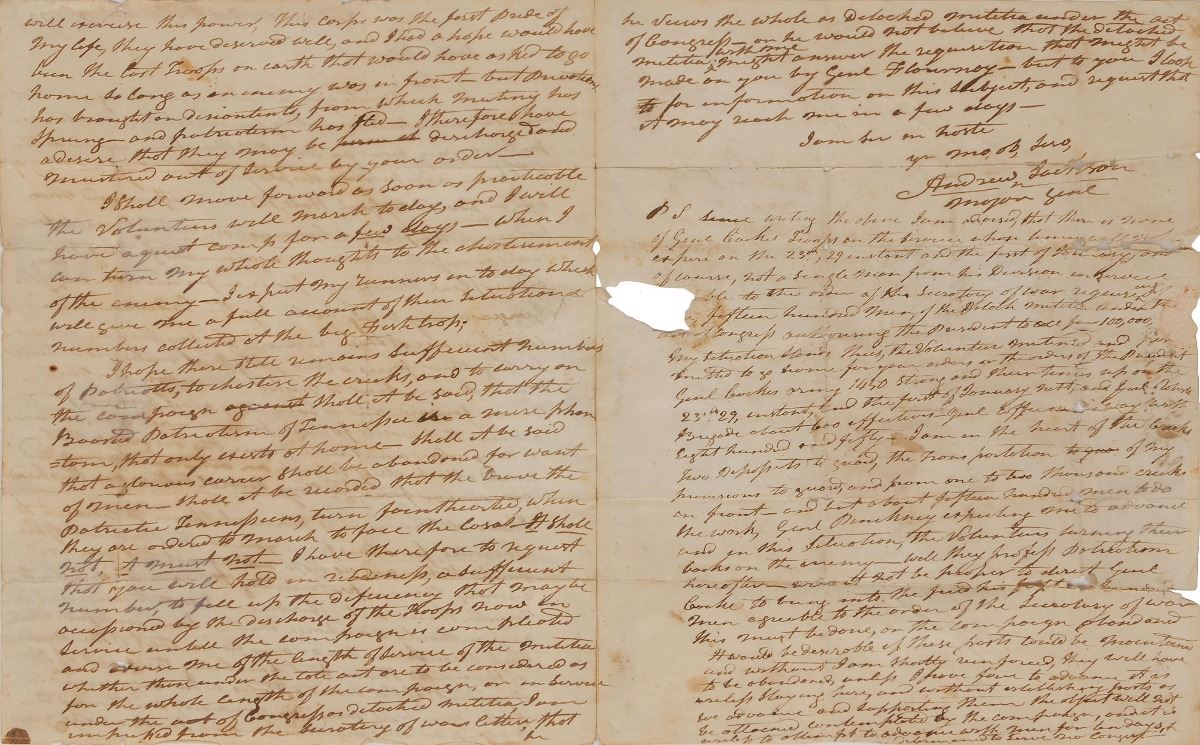 will exercise this power, This corps was the first Pride of
my life, they have deserved well, and I had a hope would have
been the last Troops on earth that would have asked to go
home so long as an enemy was in front but Privation
has brought on discontents, from which mutiny has
sprung and patriotism has fled — I therefore have
a desire that they may be discharged and
mustered out of service by your order —
I shall move forward as soon as practicable
the Volunteers will march to day, and I will
have a quiet camp for a few days — when I
can turn my whole thoughts to the chastisement
of the enemy — I expect my runners in to day which
will give me a full account of their situation &
numbers collected at the big Fishtrap;
I hope there still remains sufficient numbers
of Patriotts, to chastise the creeks, and to carry on
the campaign against shall it be said, that the
Boasted Patriotism of Tennessee is a mere phan
=tom, that only exists at home — Shall it be said
that a glorious career shall be abandoned for want
of men — shall it be recorded that the brave the
Patriotic Tennesseeans, turn fainthearted, when
they are ordered to march to face the It shall
not, it must not — I have therefore to request
that you will hold in readiness, a sufficient
number to fill up the deficiency that may be
occasioned by the discharge of the troops now in
service untill the campaign is compleated
and advise me of the length of service of the militia
whether those under the late act are to be considered as
for the whole length of the campaign, or in service
under the act of Congress as detached militia, I am
impressed from the Secretary of wars letter that
he
he views the whole as detached militia under the act
of Congress — or he would not believe that the detached
militia with me might answer the requisition that might be
made on you by Genl Flournoy — but to you I look
for information on this subject, and request that
it may reach me in a few days —
I am sir in haste
yr mo, ob, Serv,
Andrew Jackson
major Genl
P S since writing the above I am advised, that there is none
of Genl Cockes Troops on the service whose times will not
expire on the 23rd, 29 instant and the first of January, and
of course, not a single man from his Division in service
to the order of the Secretary of war
fifteen hundred men, of the militia under the
Congress authourising the President to call for 100,000,
my situation stands thus, the Volunteers mutined and
to go home for your orders or the orders of the President
Genl Cockes army 1450 strong and their times up on the
23rd 29, instant, and the first of January next, and Genl Roberts
Brigade about 600 effectives —
Eight hundred and fifty — I am in the heart of the Creeks
Two Deposits to guard, the transportation of my
provisions to guard, and from one to two thousand creeks
in front — and but about fifteen hundred men to do
the work, Genl Pinckney expecting me to advance
and in this situation, the Volunteers turning their
backs on the enemy — will they profess Patriotism
hereafter — will it not be proper to direct Genl
Cocke to bring into the field his
men agreable to the order of the Secretary of war
this must be done, or the campaign abandoned
It would be desireable if these posts could be maintained
and without I am shortly reinforced, they will have
to be abandoned, unless I have force to advance it is
useless staying here, and without establishing posts as
we advance and supporting them the object will not
be attained contemplated by the campaign, and it is
useless to attempt to advance with men for ten days